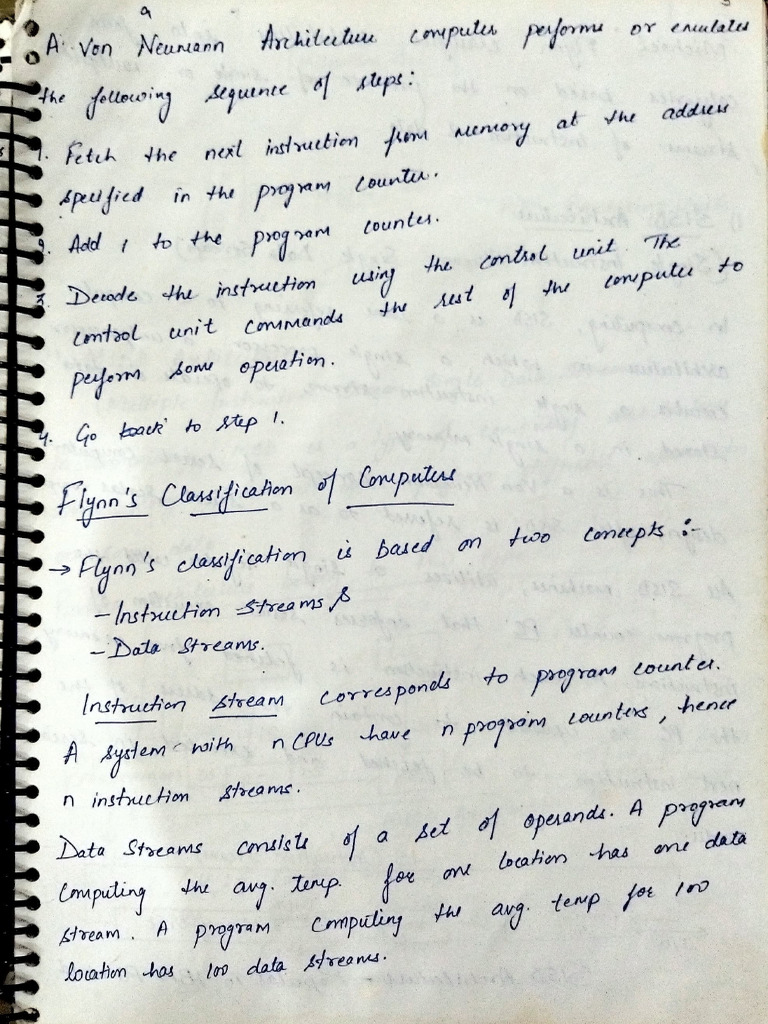 A Von Neumann Architecture computer performs or emulates
the following sequence of steps:
1. Fetch the next instruction from memory at the address
specified in the program counter.
2. Add 1 to the program counter.
3. Decode the instruction using the control unit. The
control unit commands the rest of the computer to
perform some operation.
4. Go back to step 1.
Flynn's Classification of Computers
→ Flynn's classification is based on two concepts :-
- Instruction Streams &
- Data Streams.
Instruction Stream corresponds to program counter.
A system with n CPUs have n program counters, hence
n instruction streams.
Data Streams consists of a set of operands. A program
computing the avg. temp. for one location has one data
stream. A program computing the avg. temp for 100
location has 100 data streams.